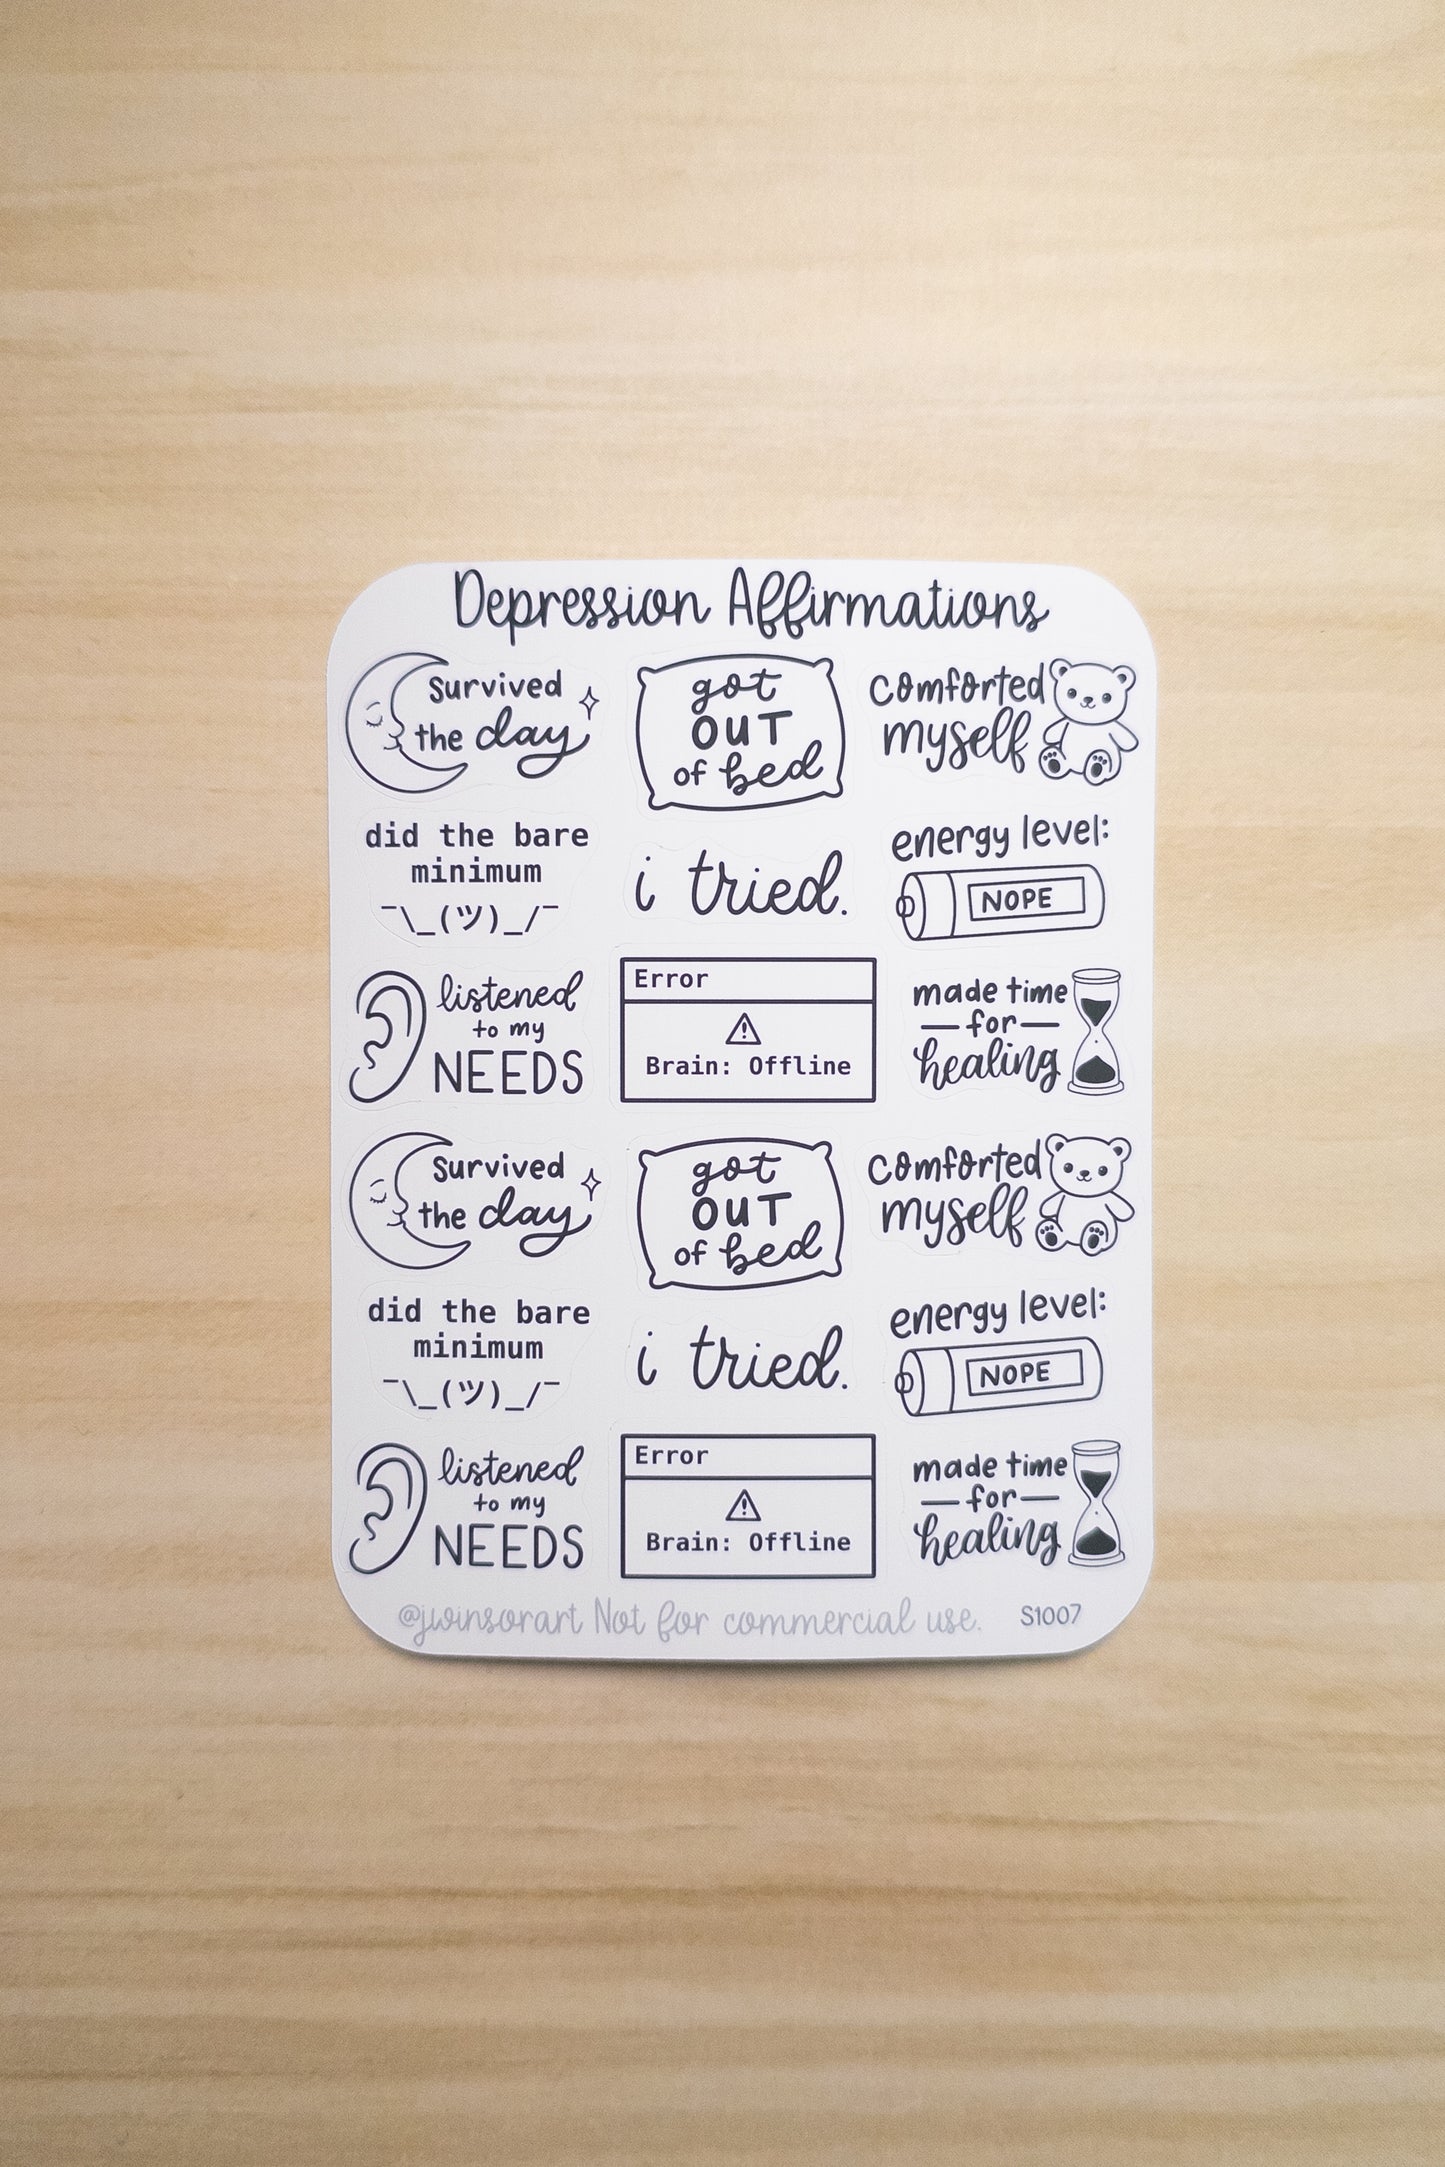 Depression Affirmations
survived
the day
got
OUT
of bed
comforted
myself
did the bare
minimum
¯\_(ツ)_/¯
i tried.
energy level:
NOPE
listened
to my
NEEDS
Error
Brain: Offline
made time
for
healing
survived
the day
got
OUT
of bed
comforted
myself
did the bare
minimum
¯\_(ツ)_/¯
i tried.
energy level:
NOPE
listened
to my
NEEDS
Error
Brain: Offline
made time
for
healing
@jwinsorart Not for commercial use. S1007